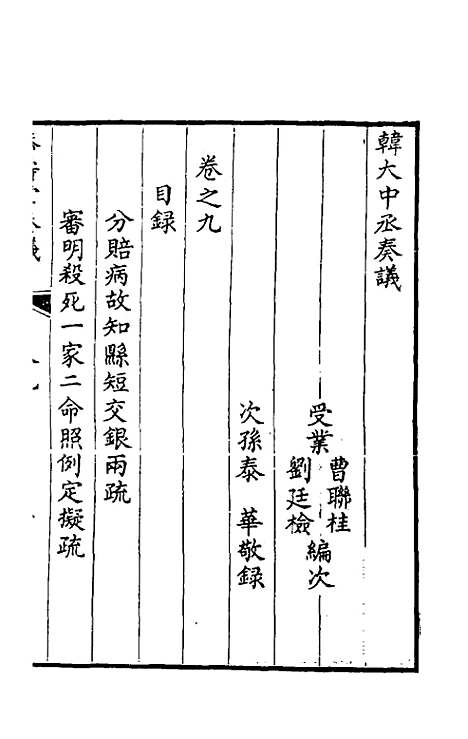 韓大中丞奏議
受業曹聯桂劉廷檢編次
次孫泰華敬録
卷之九
目録
分賠病故知縣短交銀兩疏
審明殺死一家二命照例定擬疏